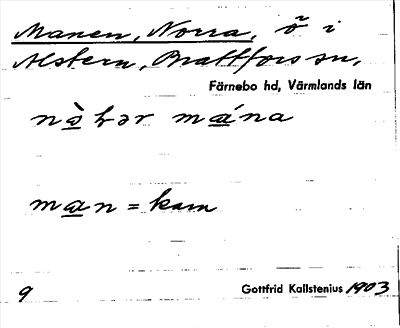 Manen, Norra, ö i
Alstern, Brattfors sn,
Färnebo hd, Värmlands län
nа̀ꝛər mána
man = kam
9 Gottfrid Kallstenius 1903